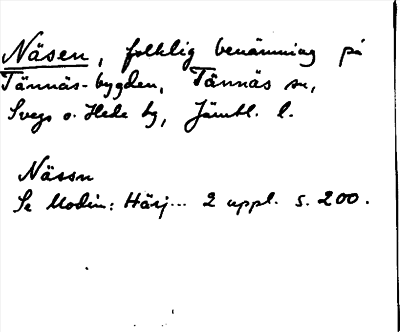 Näsen, folklig benämning på
Tännäs-bygden, Tännäs sn,
Svegs o. Hede tg, Jämtl. l.
Nässn
Se Modin: Härj... 2 uppl. s. 200.